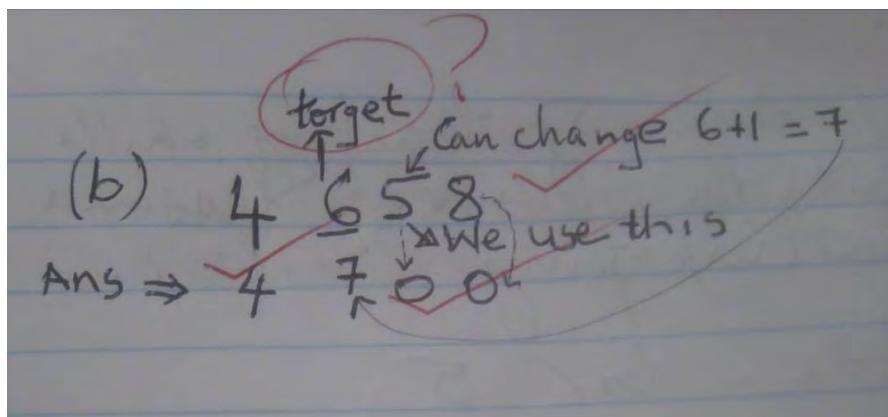 ?
target
Can change 6+1 = 7
(b) 4 6 5 8
We use this
Ans ⇒ 4 7 0 0